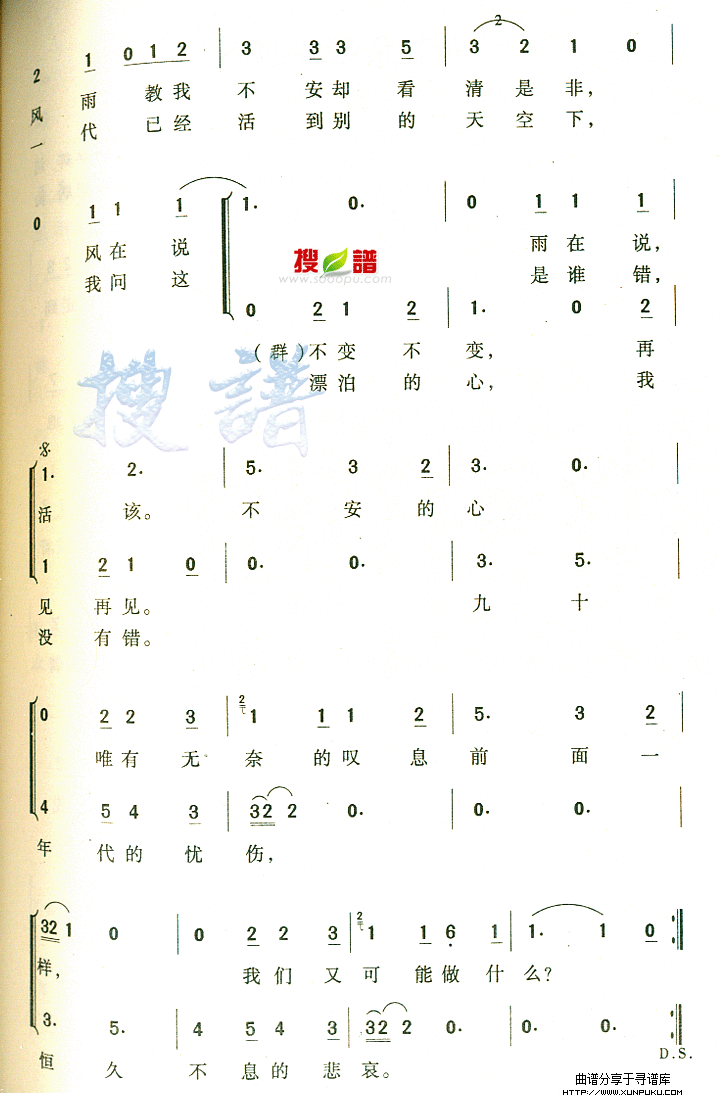 2 1 0 1 2 | 3 3 3 5 | 3 2 1 0 |
风 雨 教我 不 安却 看 清是 非，
一 代 已经 活 到别 的 天空 下，
0 1 1 1 1. 0. | 0 1 1 1 |
风在 说 雨在 说，
我问 这 是谁 错，
搜譜
www.sooopu.com
0 2 1 2 | 1. 0 2 |
（群）不变 不 变， 再
漂泊 的 心， 我
搜譜
1. 2. | 5. 3 2 | 3. 0. |
活 该。 不 安 的 心
1 2 1 0 | 0. 0. | 3. 5. |
见 再见。 九 十
没 有错。
0 2 2 3 | 2 1 1 1 2 | 5. 3 2 |
唯有 无 奈 的叹 息 前 面 一
4 5 4 3 | 32 2 0. | 0. 0. |
年 代的 忧 伤，
32 1 0 | 0 2 2 3 | 2 1 1 6 1 | 1. 1 0
样， 我们 又 可 能做 什 么？
3. 5. | 4 5 4 3 | 32 2 0. | 0. 0.
恒 久 不 息的 悲 哀。
D.S.
曲谱分享于寻谱库
HTTP://WWW.XUNPUKU.COM